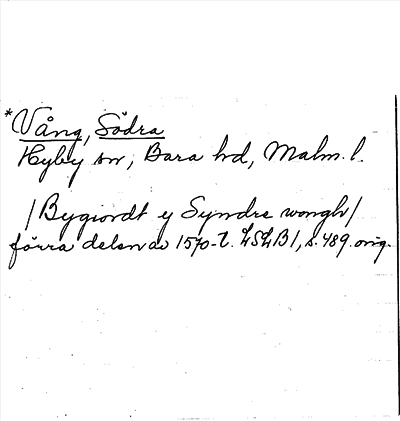 *Vång, Södra
Hyby sn, Bara hd, Malm. l.
/Bygiordt y Syndre wongh/
förra delen av 1570-t. LSLB1, s. 489. orig.